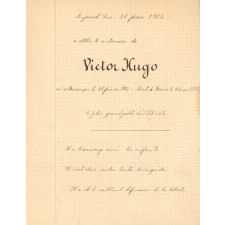 Aujourd'hui 26 février 1902
a été le centenaire de
Victor Hugo
né à Besançon le 26 février 1802 - Mort à Paris le 22 mai 1885
le plus grand poète du XIXe siècle
Il a beaucoup aimé les enfants
Il était
Il a été le vaillant défenseur de la liberté.